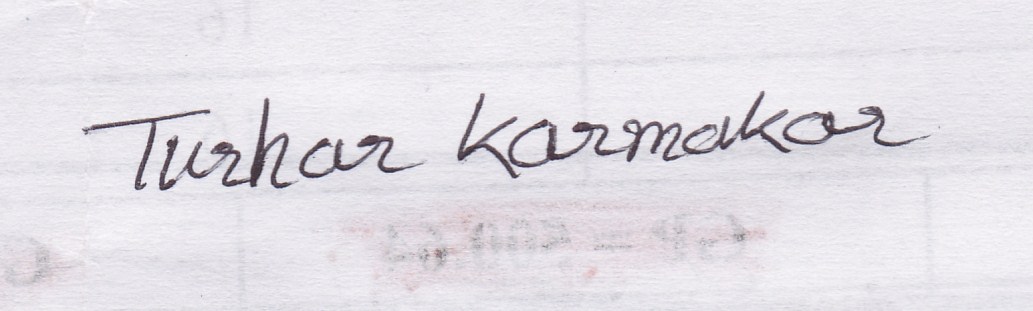 Tushar Karmakar